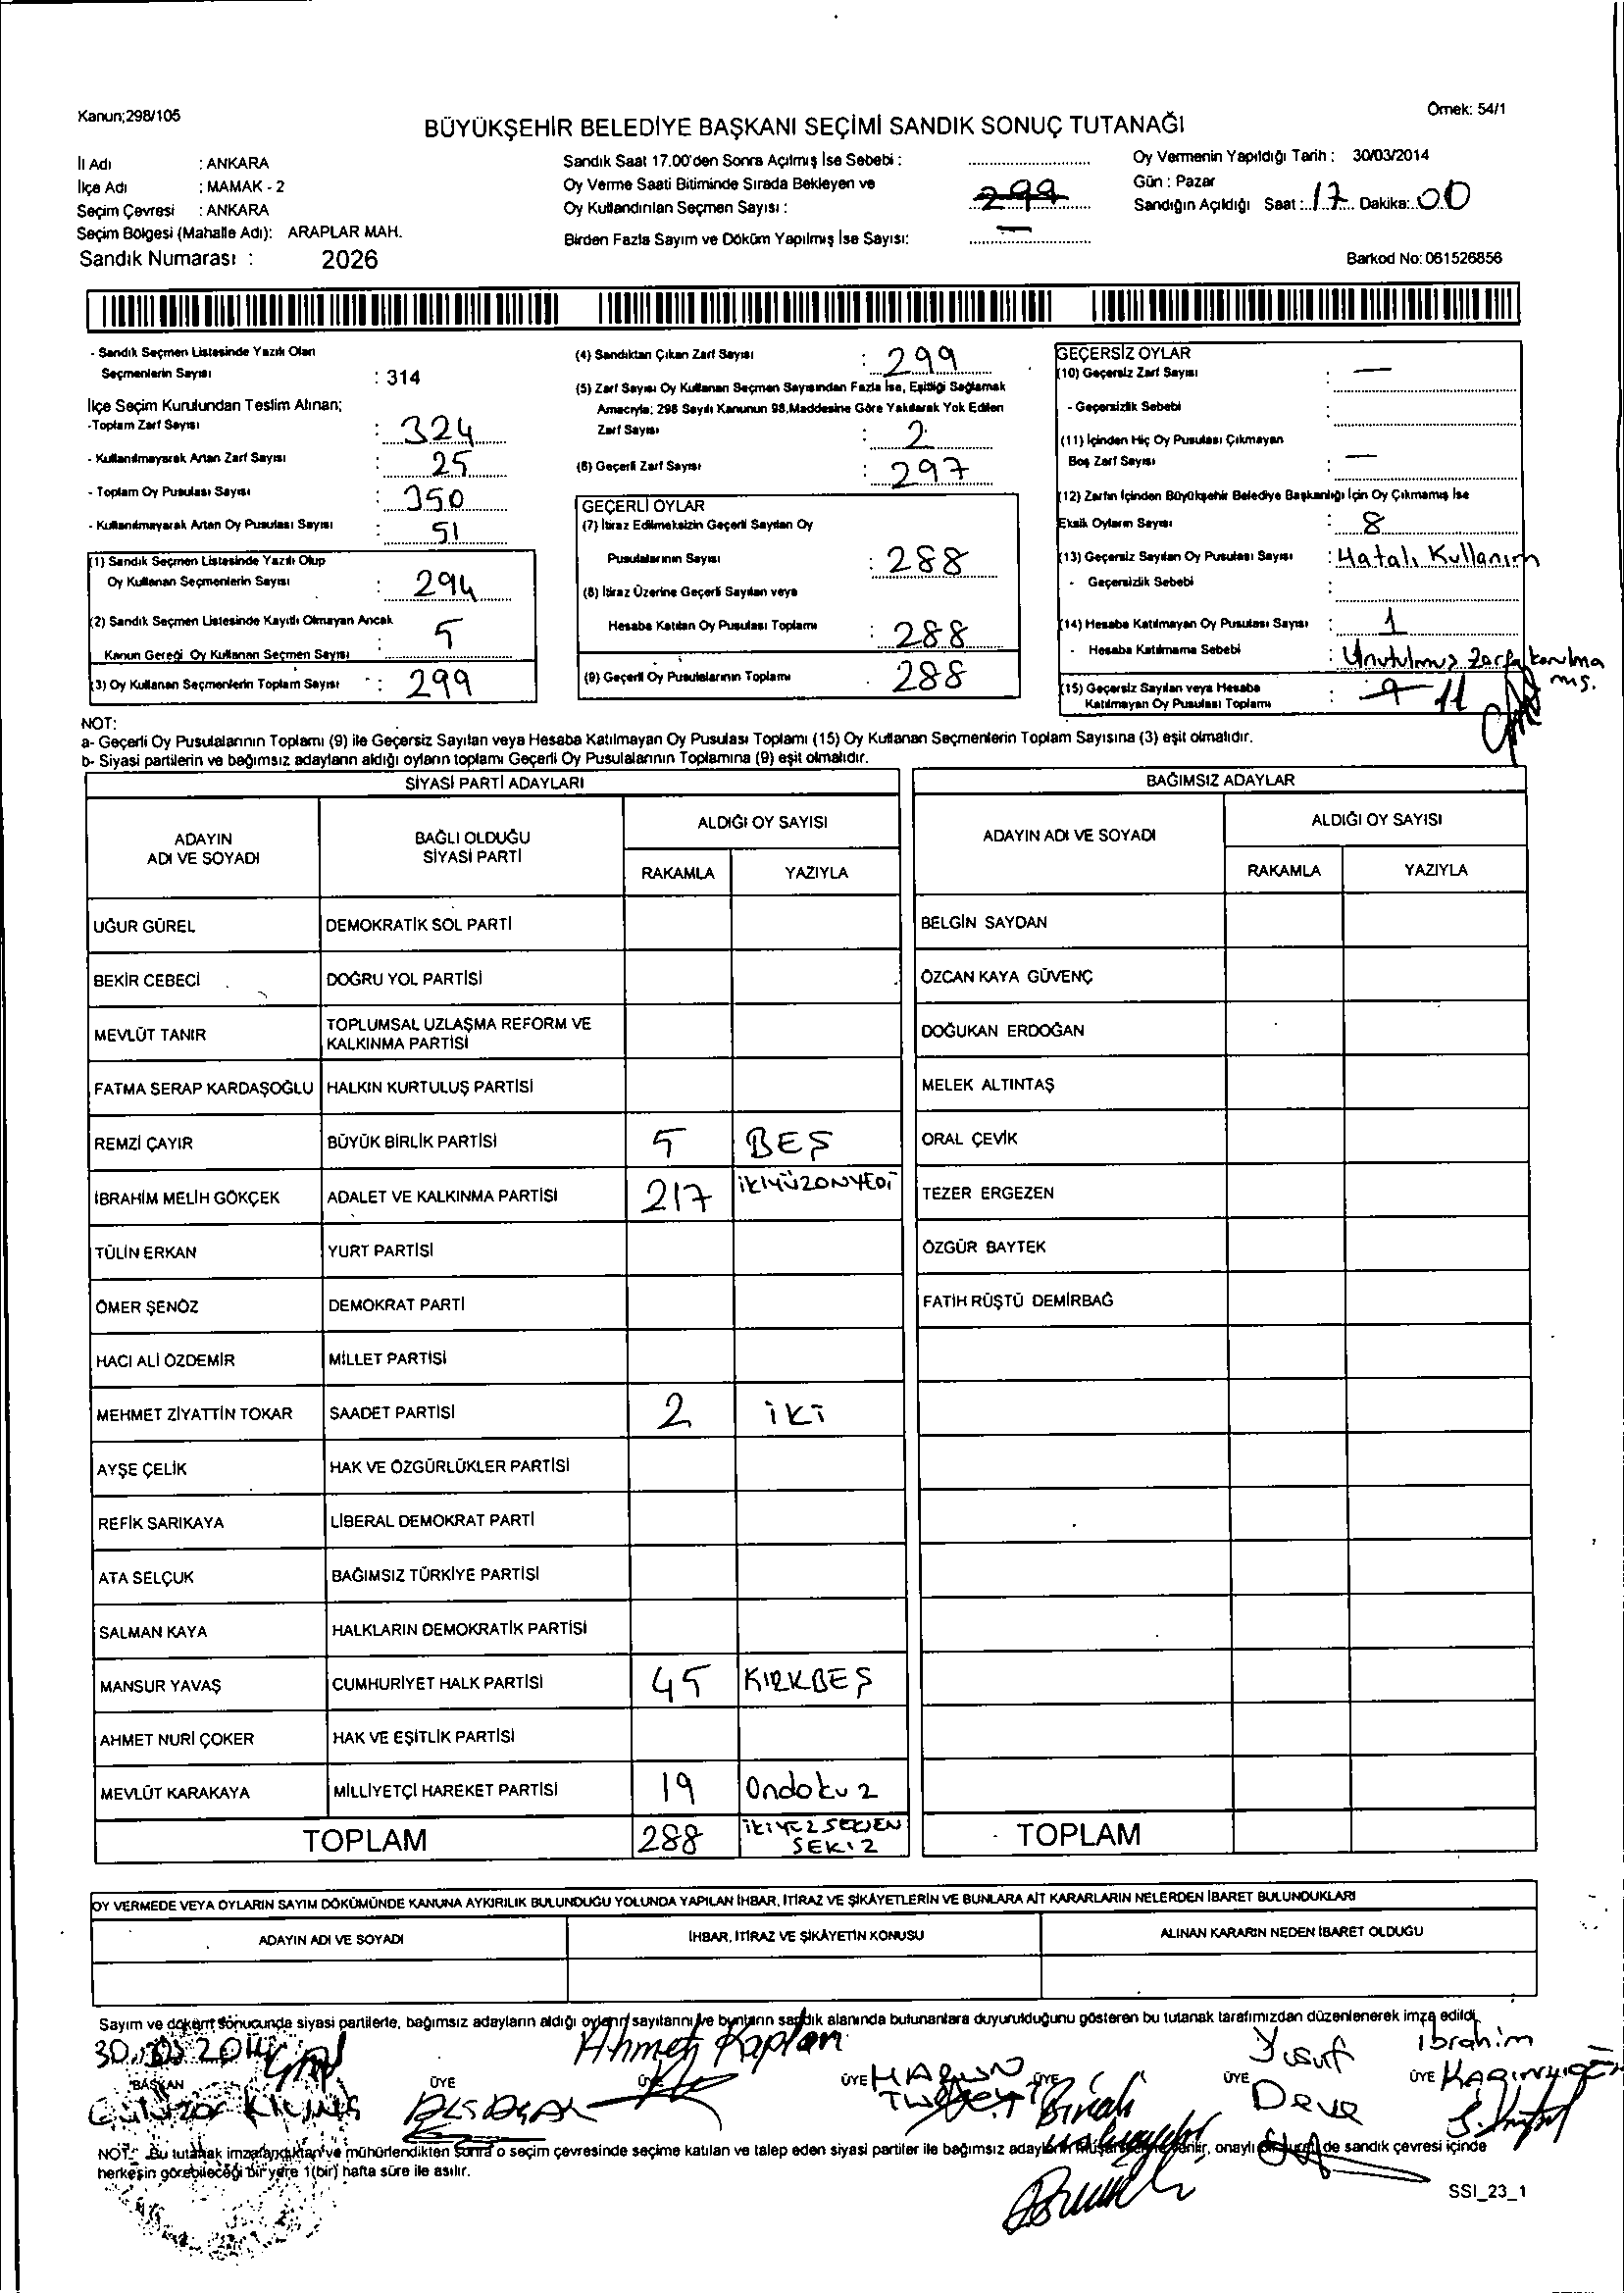 Kanun;298/105
Örnek: 54/1
BÜYÜKŞEHİR BELEDİYE BAŞKANI SEÇİMİ SANDIK SONUÇ TUTANAĞI
İl Adı : ANKARA
İlçe Adı : MAMAK - 2
Seçim Çevresi : ANKARA
Seçim Bölgesi (Mahalle Adı): ARAPLAR MAH.
Sandık Numarası : 2026
Sandık Saat 17.00'den Sonra Açılmış İse Sebebi :
Oy Verme Saati Bitiminde Sırada Bekleyen ve
Oy Kullandırılan Seçmen Sayısı : 299
Birden Fazla Sayım ve Döküm Yapılmış İse Sayısı: —
Oy Vermenin Yapıldığı Tarih : 30/03/2014
Gün : Pazar
Sandığın Açıldığı Saat : 17 Dakika: 00
Barkod No: 061526856
- Sandık Seçmen Listesinde Yazılı Olan
Seçmenlerin Sayısı : 314
İlçe Seçim Kurulundan Teslim Alınan;
-Toplam Zarf Sayısı : 324
- Kullanılmayarak Artan Zarf Sayısı : 25
- Toplam Oy Pusulası Sayısı : 350
- Kullanılmayarak Artan Oy Pusulası Sayısı : 51
(1) Sandık Seçmen Listesinde Yazılı Olup
Oy Kullanan Seçmenlerin Sayısı : 294
(2) Sandık Seçmen Listesinde Kayıtlı Olmayan Ancak
Kanun Gereği Oy Kullanan Seçmen Sayısı : 5
(3) Oy Kullanan Seçmenlerin Toplam Sayısı : 299
(4) Sandıktan Çıkan Zarf Sayısı : 299
(5) Zarf Sayısı Oy Kullanan Seçmen Sayısından Fazla İse, Eşitliği Sağlamak
Amacıyla; 298 Sayılı Kanunun 98.Maddesine Göre Yakılarak Yok Edilen
Zarf Sayısı : 2
(6) Geçerli Zarf Sayısı : 297
GEÇERLİ OYLAR
(7) İtiraz Edilmeksizin Geçerli Sayılan Oy
Pusulalarının Sayısı : 288
(8) İtiraz Üzerine Geçerli Sayılan veya
Hesaba Katılan Oy Pusulası Toplamı : 288
(9) Geçerli Oy Pusulalarının Toplamı : 288
GEÇERSİZ OYLAR
(10) Geçersiz Zarf Sayısı : —
- Geçersizlik Sebebi :
(11) İçinden Hiç Oy Pusulası Çıkmayan
Boş Zarf Sayısı : —
(12) Zarfın İçinden Büyükşehir Belediye Başkanlığı İçin Oy Çıkmamış İse
Eksik Oyların Sayısı : 8
(13) Geçersiz Sayılan Oy Pusulası Sayısı : Hatalı Kullanım
- Geçersizlik Sebebi :
(14) Hesaba Katılmayan Oy Pusulası Sayısı : 1
- Hesaba Katılmama Sebebi : Unutulmuş zarfa konulma
mış.
(15) Geçersiz Sayılan veya Hesaba
Katılmayan Oy Pusulası Toplamı : 9 11
NOT:
a- Geçerli Oy Pusulalarının Toplamı (9) ile Geçersiz Sayılan veya Hesaba Katılmayan Oy Pusulası Toplamı (15) Oy Kullanan Seçmenlerin Toplam Sayısına (3) eşit olmalıdır.
b- Siyasi partilerin ve bağımsız adayların aldığı oyların toplamı Geçerli Oy Pusulalarının Toplamına (9) eşit olmalıdır.
SİYASİ PARTİ ADAYLARI
ADAYIN ADI VE SOYADI BAĞLI OLDUĞU SİYASİ PARTİ ALDIĞI OY SAYISI
RAKAMLA YAZIYLA
UĞUR GÜREL DEMOKRATİK SOL PARTİ
BEKİR CEBECİ DOĞRU YOL PARTİSİ
MEVLÜT TANIR TOPLUMSAL UZLAŞMA REFORM VE
KALKINMA PARTİSİ
FATMA SERAP KARDAŞOĞLU HALKIN KURTULUŞ PARTİSİ
REMZİ ÇAYIR BÜYÜK BİRLİK PARTİSİ 5 BEŞ
İBRAHİM MELİH GÖKÇEK ADALET VE KALKINMA PARTİSİ 217 İKİYÜZONYEDİ
TÜLİN ERKAN YURT PARTİSİ
ÖMER ŞENÖZ DEMOKRAT PARTİ
HACI ALİ ÖZDEMİR MİLLET PARTİSİ
MEHMET ZİYATTİN TOKAR SAADET PARTİSİ 2 İKİ
AYŞE ÇELİK HAK VE ÖZGÜRLÜKLER PARTİSİ
REFİK SARIKAYA LİBERAL DEMOKRAT PARTİ
ATA SELÇUK BAĞIMSIZ TÜRKİYE PARTİSİ
SALMAN KAYA HALKLARIN DEMOKRATİK PARTİSİ
MANSUR YAVAŞ CUMHURİYET HALK PARTİSİ 45 KIRKBEŞ
AHMET NURİ ÇOKER HAK VE EŞİTLİK PARTİSİ
MEVLÜT KARAKAYA MİLLİYETÇİ HAREKET PARTİSİ 19 Ondokuz
TOPLAM 288 İKİYÜZ SEKSEN
SEKİZ
BAĞIMSIZ ADAYLAR
ADAYIN ADI VE SOYADI ALDIĞI OY SAYISI
RAKAMLA YAZIYLA
BELGİN SAYDAN
ÖZCAN KAYA GÜVENÇ
DOĞUKAN ERDOĞAN
MELEK ALTINTAŞ
ORAL ÇEVİK
TEZER ERGEZEN
ÖZGÜR BAYTEK
FATİH RÜŞTÜ DEMİRBAĞ
TOPLAM
OY VERMEDE VEYA OYLARIN SAYIM DÖKÜMÜNDE KANUNA AYKIRILIK BULUNDUĞU YOLUNDA YAPILAN İHBAR, İTİRAZ VE ŞİKÂYETLERİN VE BUNLARA AİT KARARLARIN NELERDEN İBARET BULUNDUKLARI
ADAYIN ADI VE SOYADI İHBAR, İTİRAZ VE ŞİKÂYETİN KONUSU ALINAN KARARIN NEDEN İBARET OLDUĞU
Sayım ve döküm sonucunda siyasi partilerle, bağımsız adayların aldığı oyların sayılarını ve bunların sandık alanında bulunanlara duyurulduğunu gösteren bu tutanak tarafımızdan düzenlenerek imza edildi.
30.03.2014 Ahmet Kaplan Yusuf İbrahim
BAŞKAN ÜYE ÜYE ÜYE HARUN ÜYE ÜYE Deve ÜYE
NOT: Bu tutanak imzalandıktan ve mühürlendikten sonra o seçim çevresinde seçime katılan ve talep eden siyasi partiler ile bağımsız adayların müşahitlerine verilir, onaylı bir sureti de sandık çevresi içinde
herkesin görebileceği bir yere 1(bir) hafta süre ile asılır.
SSI_23_1